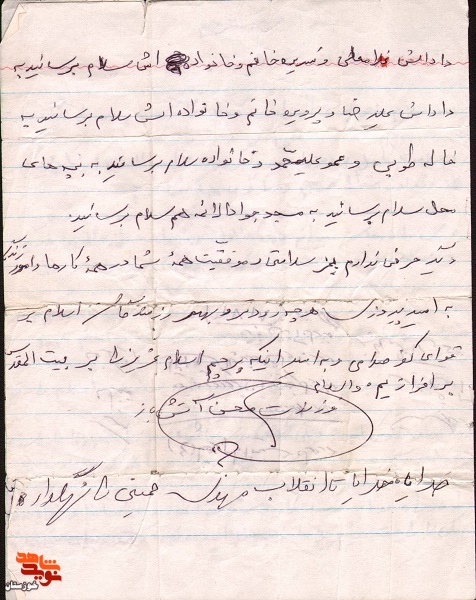 داداش غلامعلی و نسرین خانم و خانواده اش سلام برسانید به
داداش علیرضا و پروین خانم و خانواده اش سلام برسانید به
خاله طوبی و عمو علیمحمد و خانواده سلام برسانید به بچه های
محل سلام برسانید به مسجد جوادالائمه هم سلام برسانید.
دیگر حرفی ندارم بجز سلامتی و موفقیت همهٔ شما در همهٔ کارها و امور زندگی
به امید پیروزی هر چه زودتر و بهتر رزمندگان اسلام بر
قوای کفر صدامی و به امید اینکه پرچم اسلام عزیز را بر بیت المقدس
برافرازیم والسلام
فرزندت محسن آتش باز
خدایا خدایا تا انقلاب مهدی خمینی را نگهدار
شاهد
نوید
خوزستان